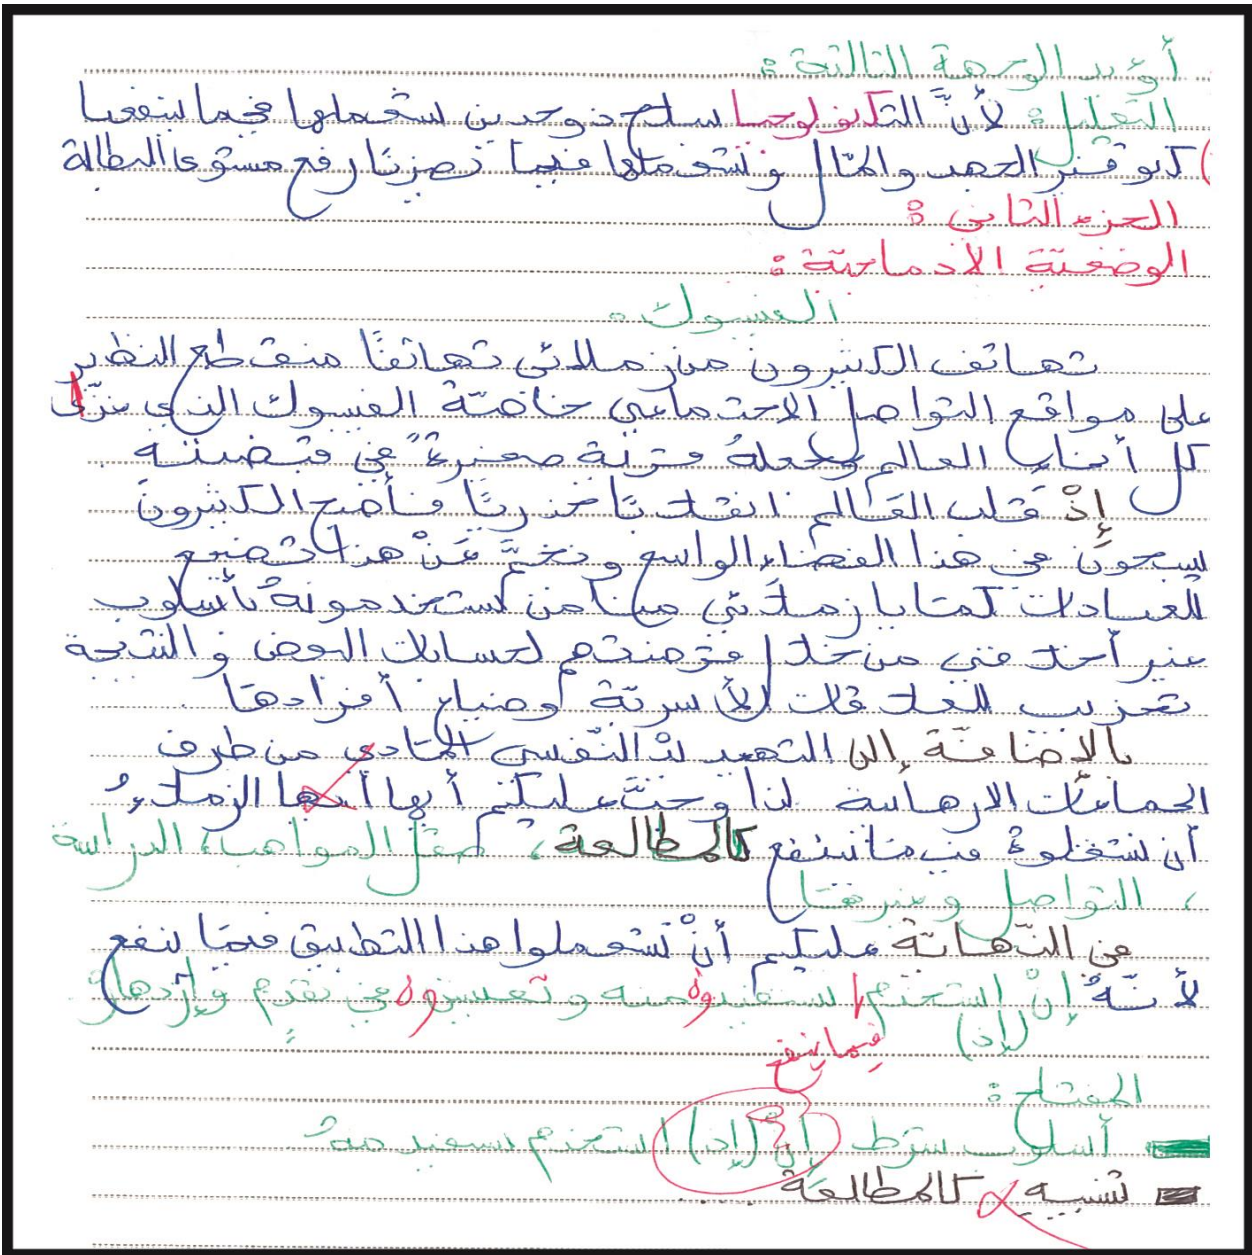 أؤيد الوجهة الثالثة :
التعليل : لأنَّ التكنولوجيا سلاح ذو حدين نستعملها فيما ينفعنا
كتوفير الجهد والمال ونستعملها فيما يضرنا رفع مستوى البطالة
الجزء الثاني :
الوضعيّة الإدماجيّة :
الفيسبوك
تهافت الكثيرون من زملائي تهافتًا منقطع النظير
على مواقع التواصل الاجتماعي خاصّة الفيسبوك الذي
كل أنحاء العالم وجعلهُ قرية صغيرةً في قبضته
إذْ قلب العالم انقلابًا جذريًا فأصبح الكثيرون
يسبحون في هذا الفضاء الواسع ونجمَّ عَنْ هذا تضييع
للعبادات كما يا زملائي منا من يستخدمونهُ بأسلوب
غير أخلاقي من خلال قرصنتهم لحسابات البعض والنتيجة
تخريب العلاقات الأسريّة وضياع أفرادها
بالإضافة إلى التهديد النّفسي المادي من طرف
الجماعات الإرهابية لذا وجبَ عليكم أيها أيها الزملاءُ
أن تستغلوهُ فيما ينفع كالمطالعة، صقل المواهب، الدراسة
، التواصل وغيرها
في النّهاية عليكم أنْ تستعملوا هذا التطبيق فيما ينفع
لأنّهُ إنْ استخدم تستفيدوا منه وتعيشوا في تقدم وازدهار
(إذ) فيما ينفع
المفتاح :
أسلوب شرط إن (إذ) استخدم تستفيد منهُ
تشبيه كالمطالعة